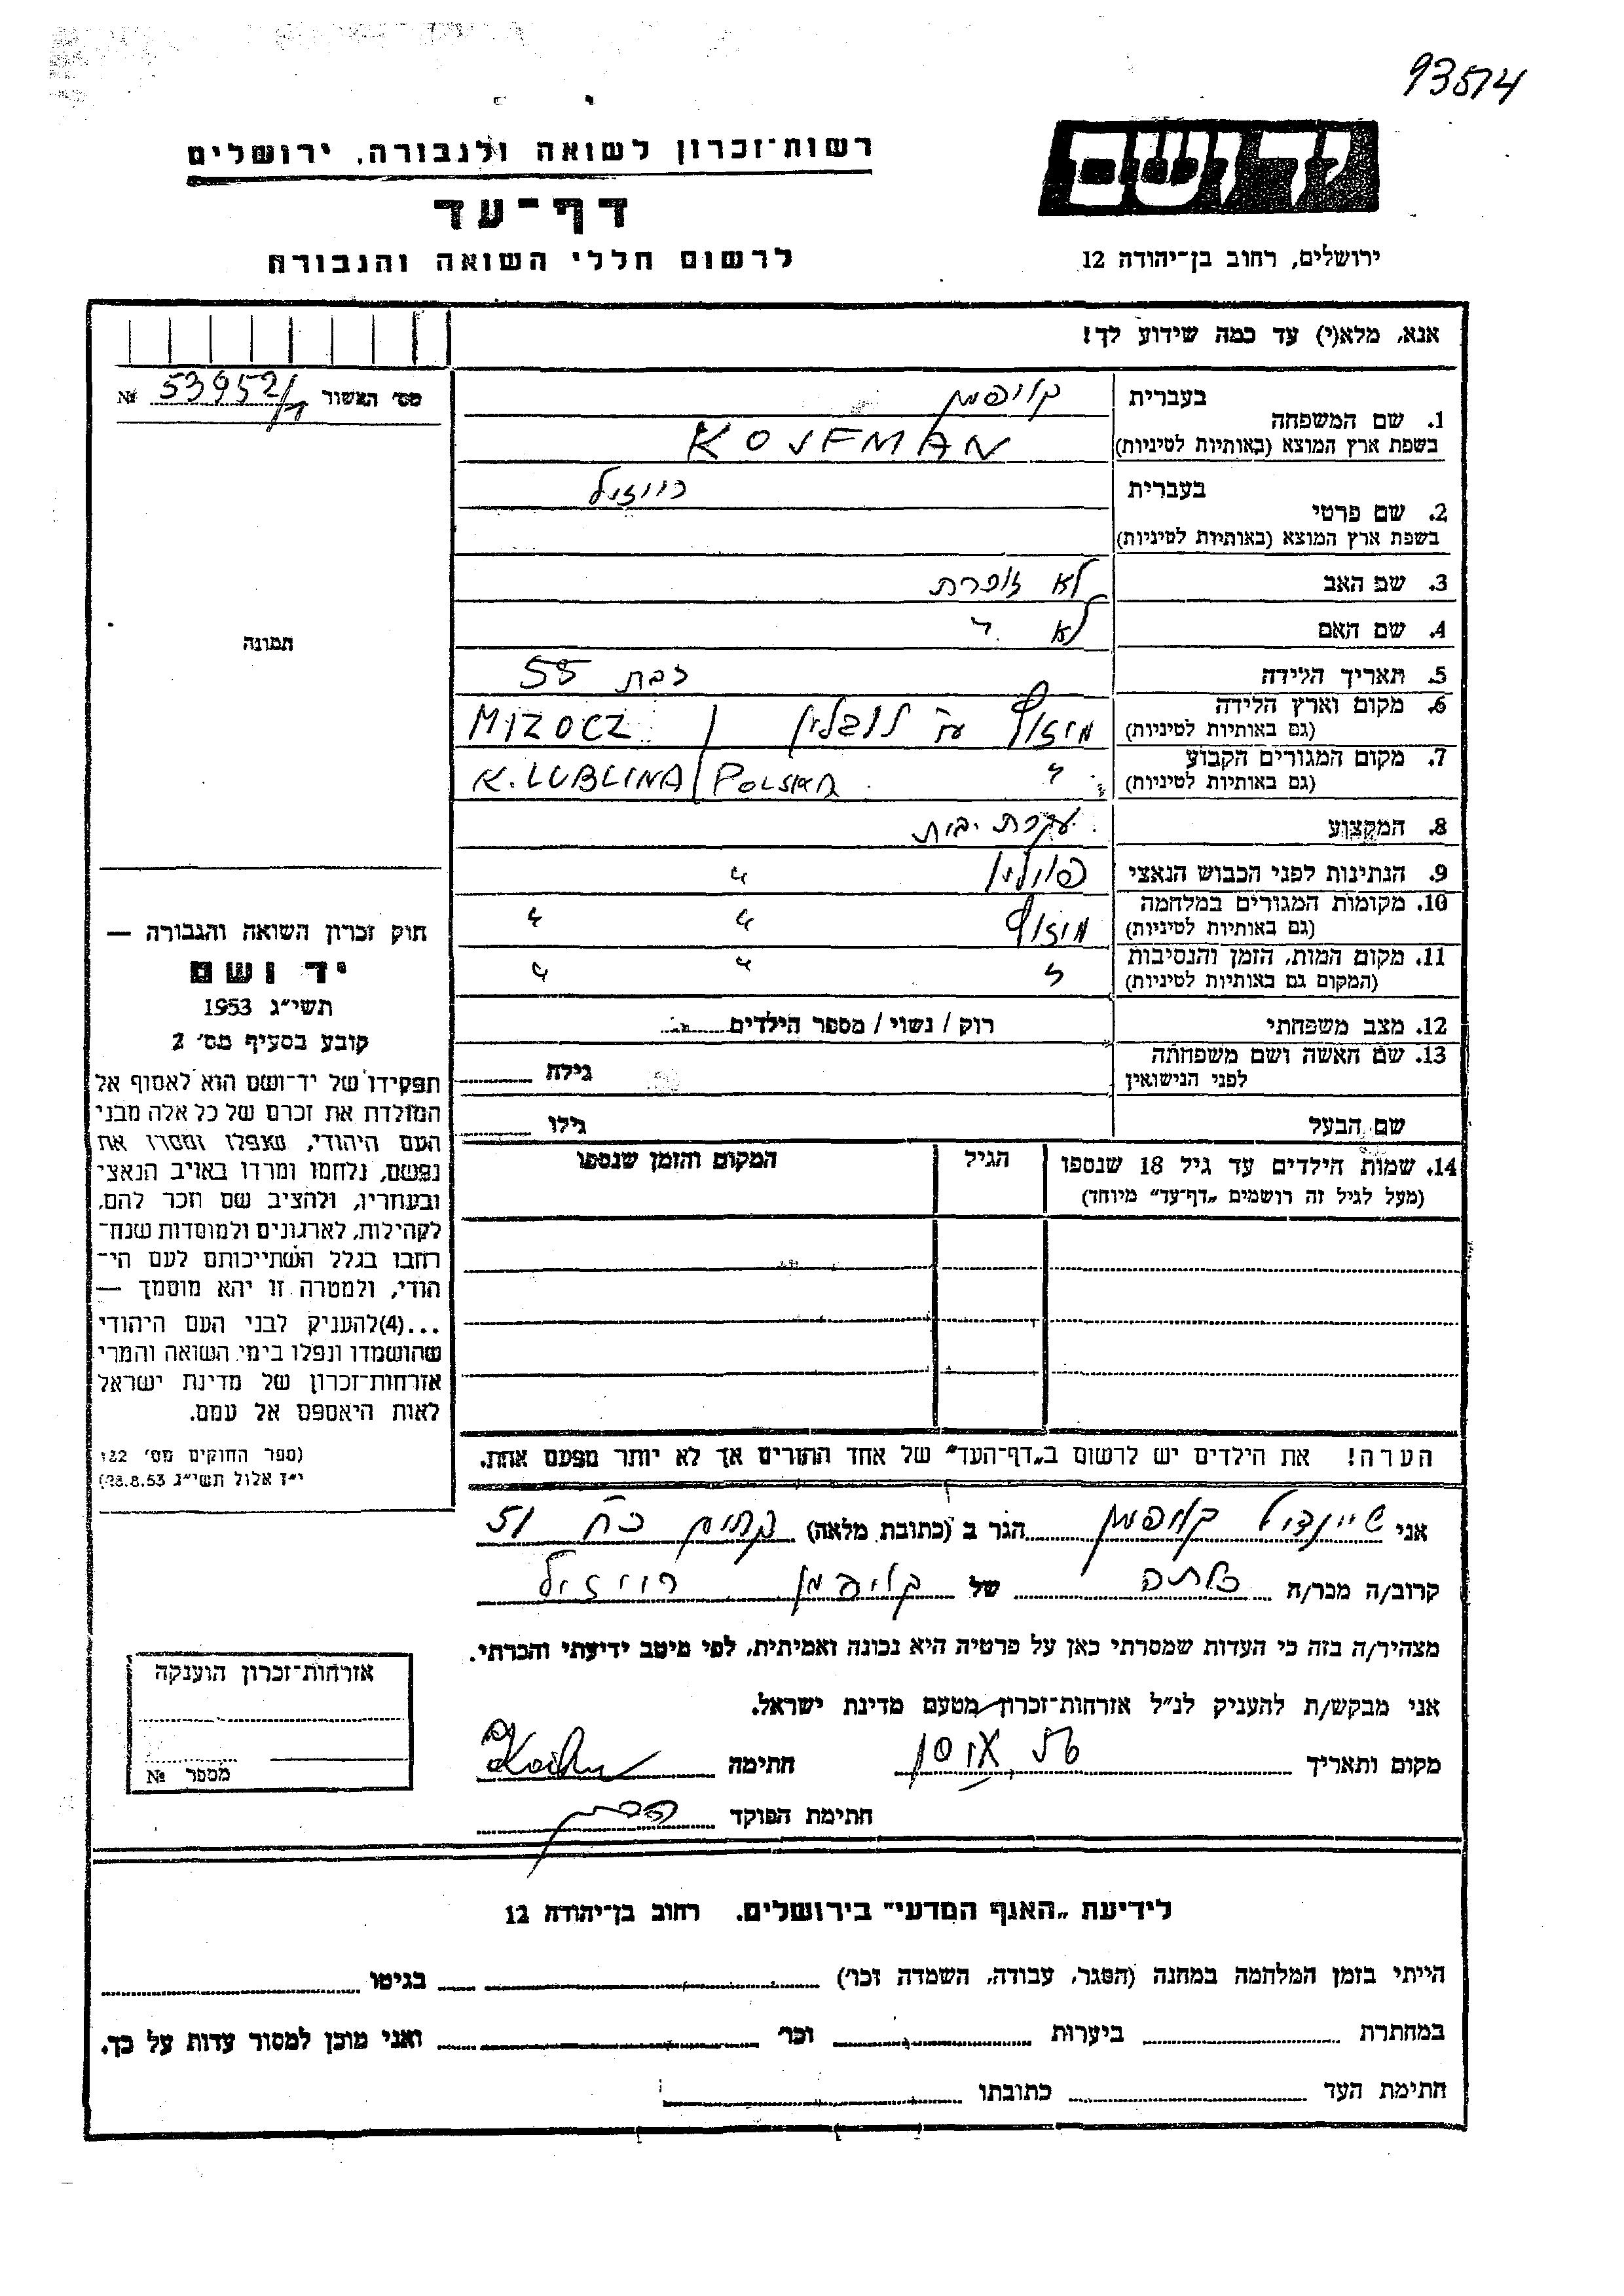 93514
רשות־זכרון לשואה ולגבורה, ירושלים
יד ושם
דף־עד
לרשום חללי השואה והגבורה
ירושלים, רחוב בן־יהודה 12
אנא, מלא(י) עד כמה שידוע לך!
מס׳ האשור 53952/ №
1. שם המשפחה
בעברית קויפמן
בשפת ארץ המוצא (באותיות לטיניות) KOJFMAN
2. שם פרטי
בעברית רייזיל
בשפת ארץ המוצא (באותיות לטיניות)
3. שם האב לא זוכרת
4. שם האם לא "
תמונה
5. תאריך הלידה בת 55
6. מקום וארץ הלידה
(גם באותיות לטיניות) ע״י לובלין / MIZOCZ
7. מקום המגורים הקבוע
(גם באותיות לטיניות) " K. LUBLINA / POLSKA
8. המקצוע עקרת בית
9. הנתינות לפני הכבוש הנאצי פולין "
10. מקומות המגורים במלחמה
(גם באותיות לטיניות) " "
11. מקום המות, הזמן והנסיבות
(המקום גם באותיות לטיניות) " " "
12. מצב משפחתי רוק / נשוי / מספר הילדים
13. שם האשה ושם משפחתה
לפני הנישואין גילה
שם הבעל גילו
14. שמות הילדים עד גיל 18 שנספו הגיל המקום והזמן שנספו
(מעל לגיל זה רושמים „דף־עד״ מיוחד)
חוק זכרון השואה והגבורה —
יד ושם
תשי״ג 1953
קובע בסעיף מס׳ 2
תפקידו של יד־ושם הוא לאסוף אל
המולדת את זכרם של כל אלה מבני
העם היהודי, שנפלו ומסרו את
נפשם, נלחמו ומרדו באויב הנאצי
ובעוזריו, ולהציב שם וזכר להם,
לקהילות, לארגונים ולמוסדות שנח־
רחבו בגלל השתייכותם לעם הי־
הודי, ולמטרה זו יהא מוסמך —
...(4) להעניק לבני העם היהודי
שהושמדו ונפלו בימי השואה והמרי
אזרחות־זכרון של מדינת ישראל
לאות היאספם אל עמם.
(ספר החוקים מס׳ 132
י״ז אלול תשי״ג 28.8.53)
הערה! את הילדים יש לרשום ב„דף־העד״ של אחד ההורים אך לא יותר מפעם אחת.
אני שיינדיל קויפמן הגר ב (כתובת מלאה) 51
קרוב/ה מכר/ה כלתה של קויפמן רייזיל
מצהיר/ה בזה כי העדות שמסרתי כאן על פרטיה היא נכונה ואמיתית, לפי מיטב ידיעתי והכרתי.
אני מבקש/ת להעניק לנ״ל אזרחות־זכרון מטעם מדינת ישראל.
מקום ותאריך חתימה
חתימת הפוקד
אזרחות־זכרון הוענקה
מספר №
לידיעת „האגף המדעי״ בירושלים. רחוב בן־יהודה 12
הייתי בזמן המלחמה במחנה (הסגר, עבודה, השמדה וכו׳) בגיטו
במחתרת ביערות וכו׳ ואני מוכן למסור עדות על כך.
חתימת העד כתובתו